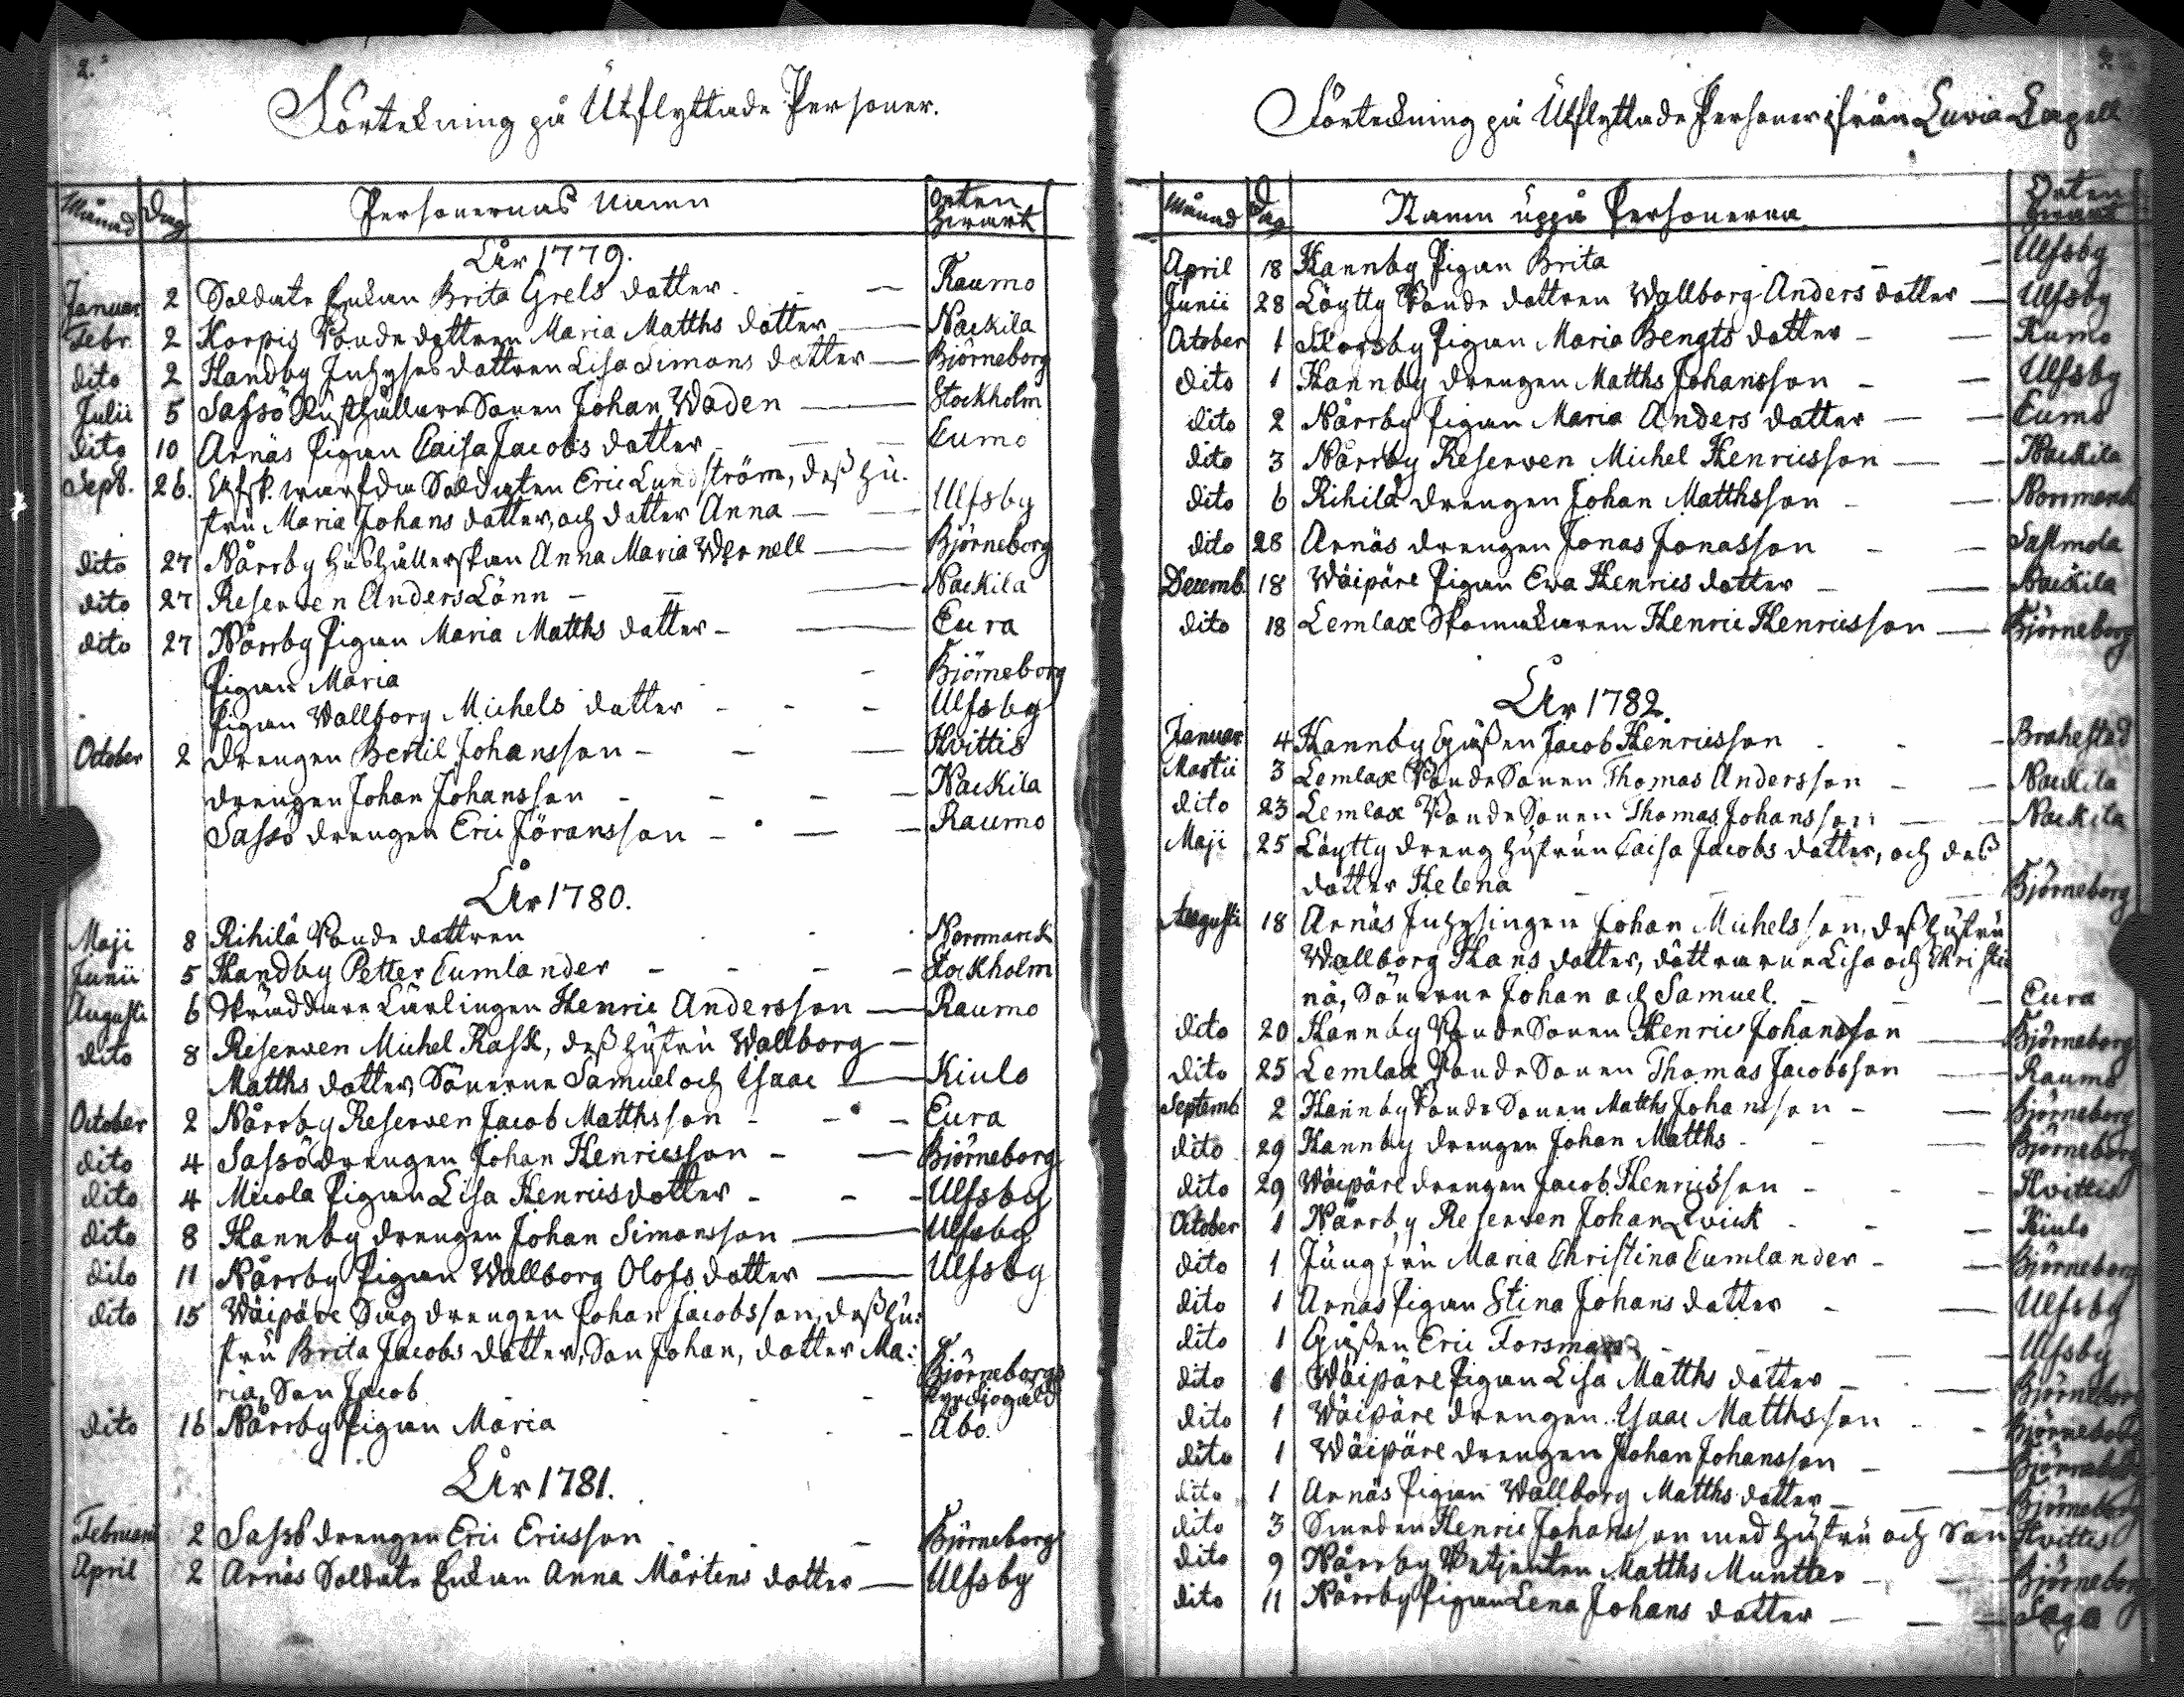 2.
Förtekning på Utflyttade Personer.
Månad Dag Personernas Namn Orten
hwart
År 1779.
Januar 2 Soldate Enkan Brita Grels dotter Raumo
Febr. 2 Korpis Bonde dottren Maria Matths dotter Nackila
dito 2 Handby Inhyses dottren Lisa Simons dotter Björneborg
Julii 5 Sassö Rusthållare Sonen Johan Woden Stockholm
dito 10 Arnäs Pigan Caisa Jacobs dotter Cumo
Sept. 26. Soldaten Eric Lundström, dess hu-
stru Maria Johans dotter, och dotter Anna Ulfsby
dito 27 Nårrby Hushållerskan Anna Maria Wernell Björneborg
dito 27 Reserven Anders Lönn Nackila
dito 27 Nårrby Pigan Maria Matths dotter Eura
Pigan Maria Björneborg
Pigan Wallborg Michels dotter Ulfsby
October 2 drengen Bertil Johansson Hvittis
drengen Johan Johansson Nackila
Sassö drengen Eric Jöransson Raumo
År 1780.
Maji 8 Rihilä Bonde dottren Norrmark
Junii 5 Handby Petter Cumlander Stockholm
Augusti 6 Skräddare Lärlingen Henric Andersson Raumo
dito 8 Reserven Michel Rask, dess hustru Wallborg
Matths dotter, Sönerne Samuel och Isaac Kiulo
October 2 Nårrby Reserven Jacob Matthsson Eura
dito 4 Sassö drengen Johan Henricsson Björneborg
dito 4 Micola Pigan Lisa Henrics dotter Ulfsby
dito 8 Hannby drengen Johan Simonsson Ulfsby
dito 11 Nårrby Pigan Wallborg Olofs dotter Ulfsby
dito 15 Wäipäre Sag drengen Johan Jacobsson, dess hu-
stru Brita Jacobs dotter, Son Johan, dotter Ma-
ria, Son Jacob Björneborgs
dito 16 Nårrby Pigan Maria Åbo.
År 1781.
Februarii 2 Sassö drengen Eric Ericsson Björneborg
April 2 Arnäs Soldate Enkan Anna Mårtens dotter Ulfsby
Förteckning på Utflyttade Personer ifrån Luvia Capell
Månad Dag Namn uppå Personerna Orten
hwart
April 18 Hannby Pigan Brita Ulfsby
Junii 28 Löytty Bonde dottren Wallborg Anders dotter Ulfsby
October 1 Skogsby Pigan Maria Bengts dotter Kumo
dito 1 Hannby drengen Matths Johansson Ulfsby
dito 2 Nårrby Pigan Maria Anders dotter Cumo
dito 3 Nårrby Reserven Michel Henricsson Nackila
dito 6 Rihilä drengen Johan Matthsson Norrmark
dito 28 Arnäs drengen Jonas Jonasson Sastmola
Decemb. 18 Wäipäre Pigan Ewa Henrics dotter Nackila
dito 18 Lemlax Skomakaren Henric Henricsson Björneborg
År 1782.
Januar 4 Hannby Gässen Jacob Henricsson Brahestad
Martii 3 Lemlax Bonde Sonen Thomas Andersson Nackila
dito 23 Lemlax Bonde Sonen Thomas Johansson Nackila
Maji 25 Löytty dreng hustrun Caisa Jacobs dotter, och dess
dotter Helena Björneborg
Augusti 18 Arnäs Inhysingen Johan Michelsson, dess hustru
Wallborg Hans dotter, döttrarne Lisa och Christi
na, Sönerne Johan och Samuel. Eura
dito 20 Hannby Bonde Sonen Henric Johansson Björneborg
dito 25 Lemlax Bonde Sonen Thomas Jacobsson Raumo
Septemb. 2 Hannby Bonde Sonen Matths Johansson Björneborg
dito 29 Hannby drengen Johan Matths Björneborg
dito 29 Wäipäre drengen Jacob Henricsson Hvittis
October 1 Nårrby Reserven Johan Qvick Kiulo
dito 1 Jungfru Maria Christina Cumlander Björneborg
dito 1 Arnäs Pigan Stina Johans dotter Ulfsby
dito 1 Gässen Eric Forsman Ulfsby
dito 1 Wäipäre Pigan Lisa Matths dotter Björneborg
dito 1 Wäipäre drengen Isaac Matthsson Björneborg
dito 1 Wäipäre drengen Johan Johansson Björneborg
dito 1 Arnäs Pigan Wallborg Matths dotter Björneborg
dito 3 Smeden Henric Johansson med hustru och Son Hvittis
dito 9 Nårrby Betjenten Matths Muntter Björneborg
dito 11 Nårrby Pigan Lena Johans dotter